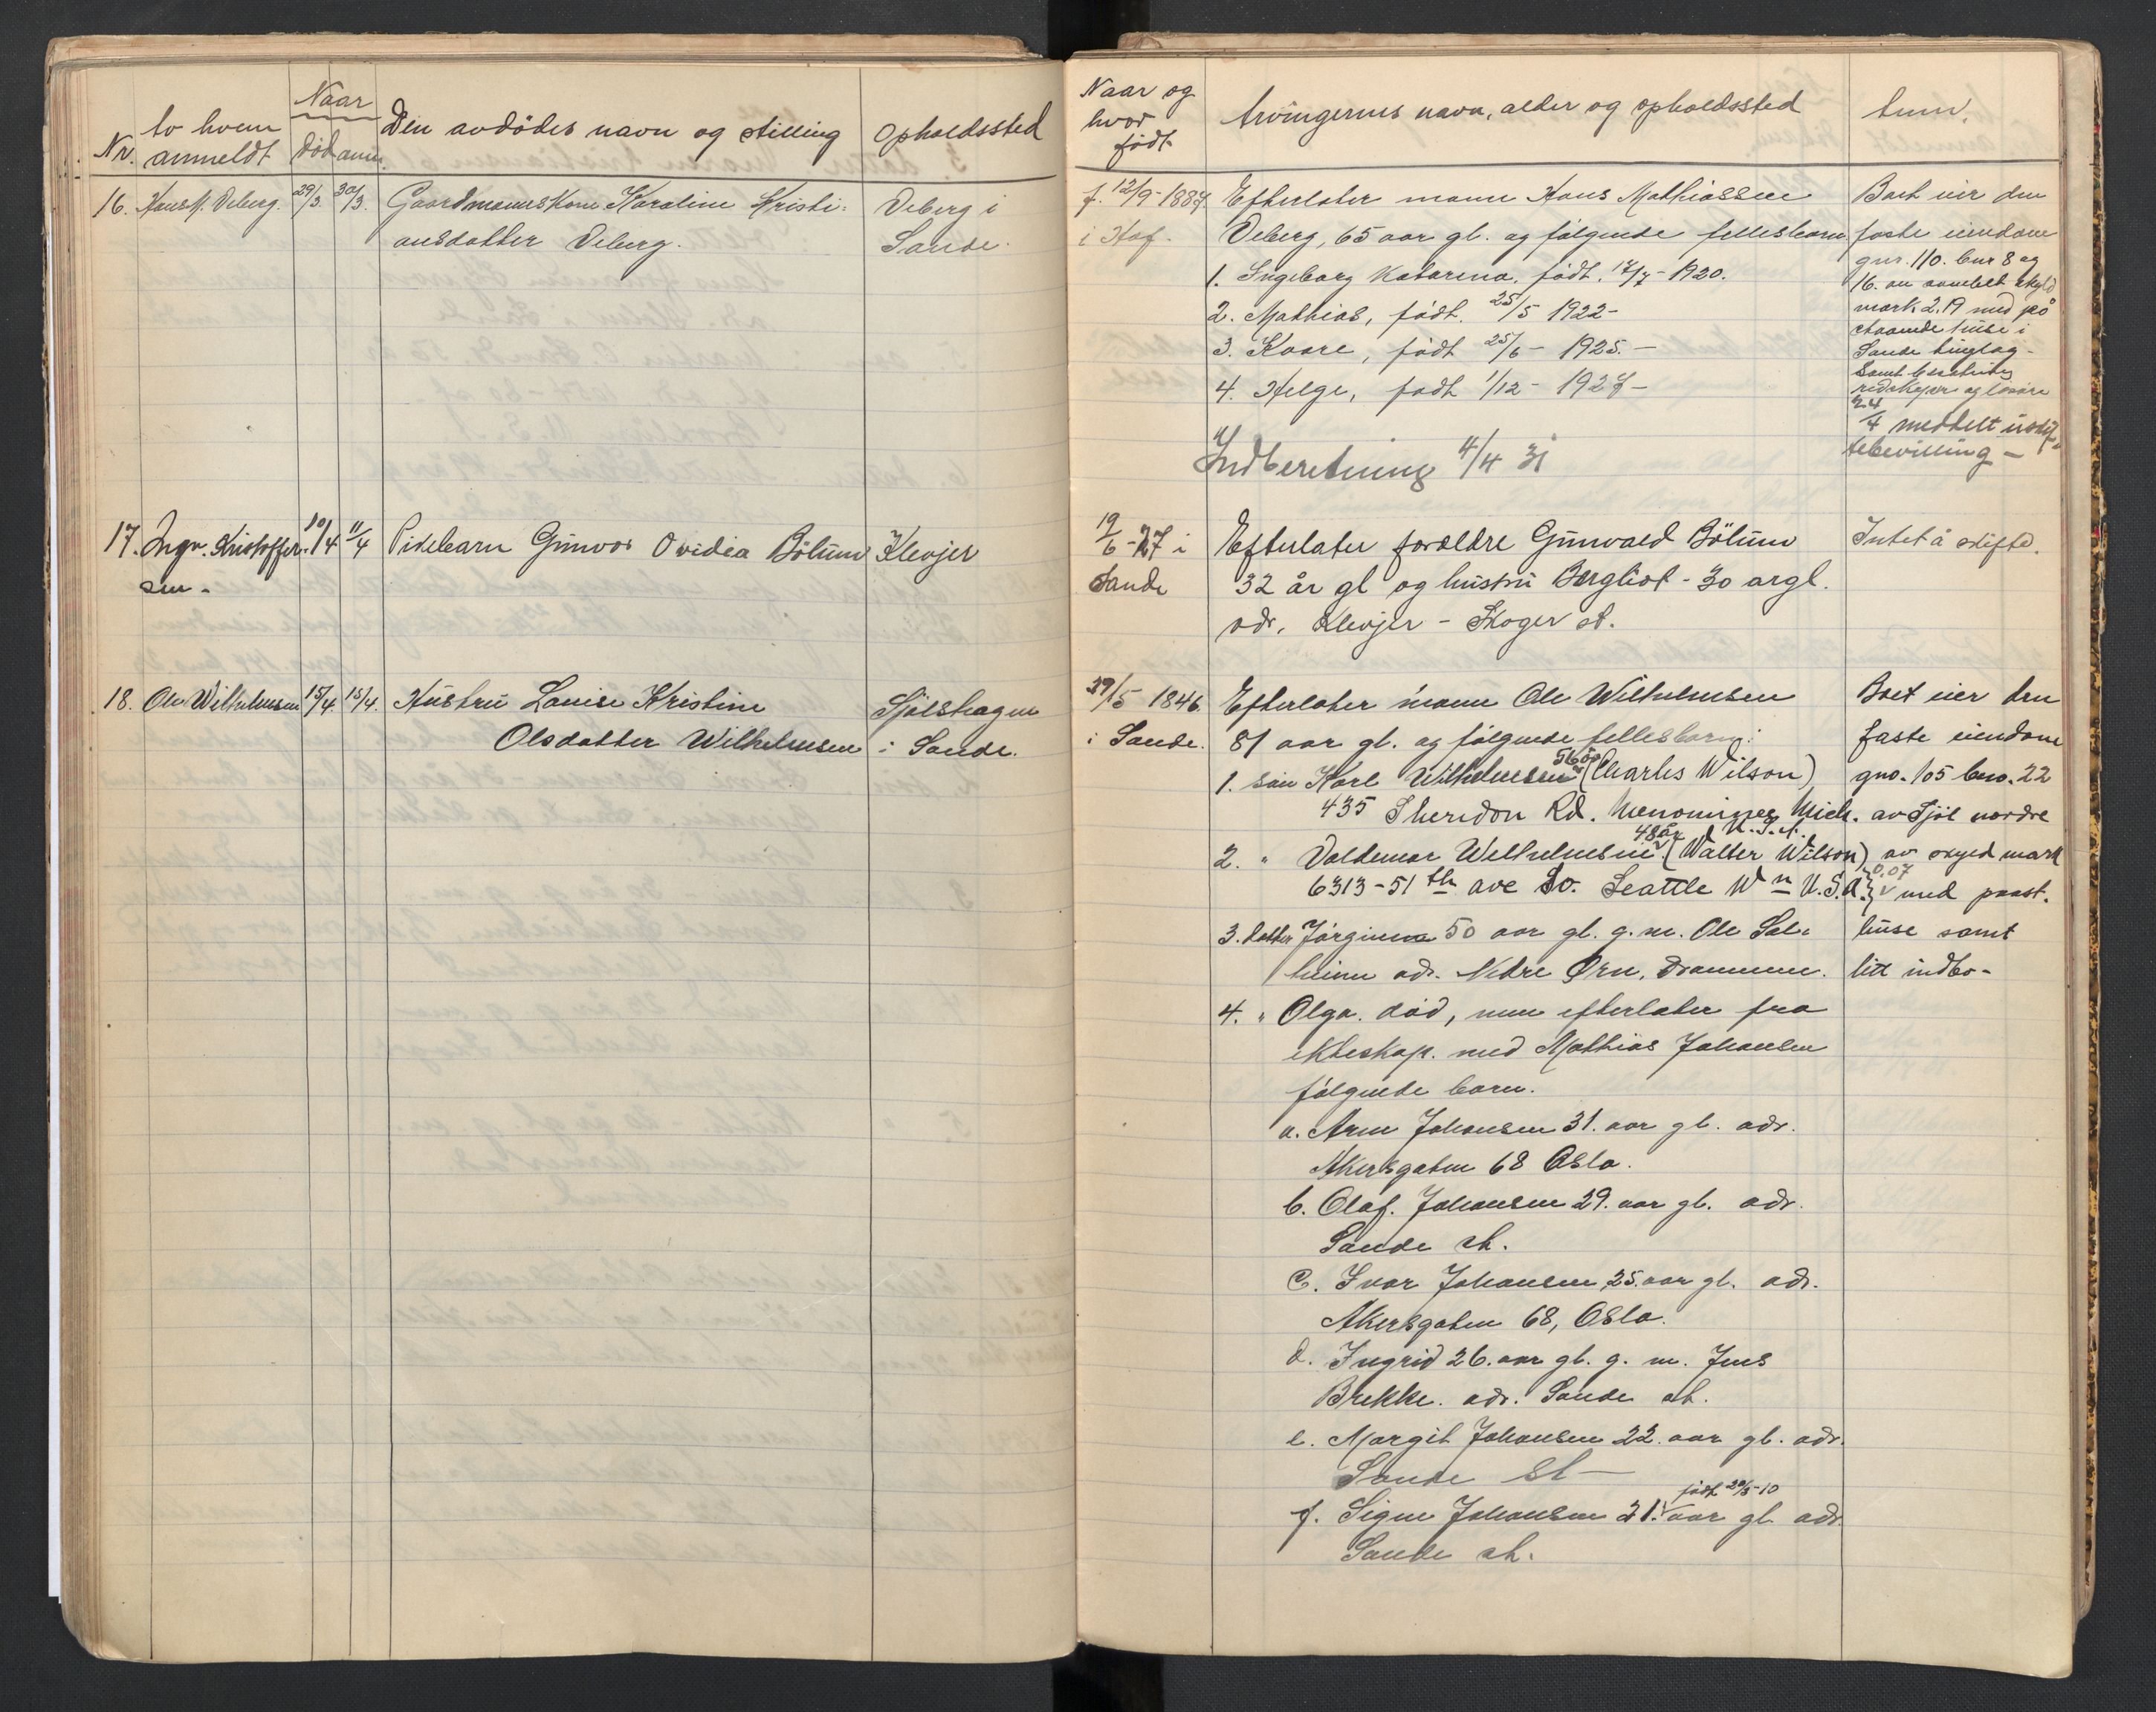 Nr.
Av hvem
anmeldt
Naar
död
anm.
Den avdödes navn og stilling
Opholdssted
16. Hans M. Deberg. 29/3 30/3. Gaardmannskone Karoline Kristi-
ansdatter Deberg.
Deberg i
Sande.
17. Ingv. Kristoffer-
sen.
10/4 11/4 Pikebarn Gunvor Ovidia Bölum Klevjer
18. Ole Wilhelmsen 15/4. 15/4. Hustru Louise Kristine
Olsdatter Wilhelmsen
Sjölshagen
i Sande.
Naar og
hvor
födt
Arvingernes navn, alder og opholdssted
Anm.
f. 12/9-1887
i Hof.
Efterlater mann Hans Mathiassen
Deberg, 65 aar gl. og följende fellesbarn
1. Ingeborg Katarina, födt. 17/7-1920.
2. Mathias, födt. 25/5 1922-
3. Kaare, födt 25/6- 1925.-
4. Helge, födt 1/12- 1927-
Indberetning 4/4 31
Boet eier den
faste eiendom
gnr. 110. bnr 8 og
16. av samlet skyld
mark 2.19 med på
staaende huse i
Sande tinglag-
Samt besetning
redskaper og lösöre
24/4 meddelt uskif-
tebevilling-
19/6-27 i
Sande
Efterlater foreldre Gunvald Bölum
32 år gl og hustru Bergliot - 30 årgl.
adr. Klevjer - Skoger st.
Intet å skifte.
29/5 1846.
i Sande.
Efterlater mann Ole Wilhelmsen
81 aar gl. og fölgende fellesbarn:
1. sön Karl Wilhelmsen 56 år (Charles Wilson)
435 Sheridon Rd. Menominee Mich.
U.S.A.
2. " Valdemar Wilhelmsen 48 år (Walter Wilson)
6313-51th ave So. Seattle Wn U.S.A.
3. datter Jörginna 50 aar gl. g.m. Ole Sol-
heim adr. Nedre Ørn, Drammen.
4. " Olga. död, men efterlater fra
ekteskap. med Mathias Johansen
fölgende barn.
a. Arne Johansen 31. aar gl. adr.
Akersgaten 68 Oslo.
b. Olaf. Johansen 29. aar gl. adr.
Sande st.
c. Ivar Johansen 25. aar gl. adr.
Akersgaten 68, Oslo.
d. Ingrid 26. aar gl. g. m. Jens
Brekke. adr. Sande st.
e. Margit Johansen 22. aar gl. adr.
Sande St-
f. Signe Johansen 21. aar gl. adr.
födt 20/5-10
Sande st.
Boet eier den
faste eiendom
gno. 105 bno. 22
av Sjöl nordre
av skyld mark
0.07
med paast.
huse samt
litt indbo-